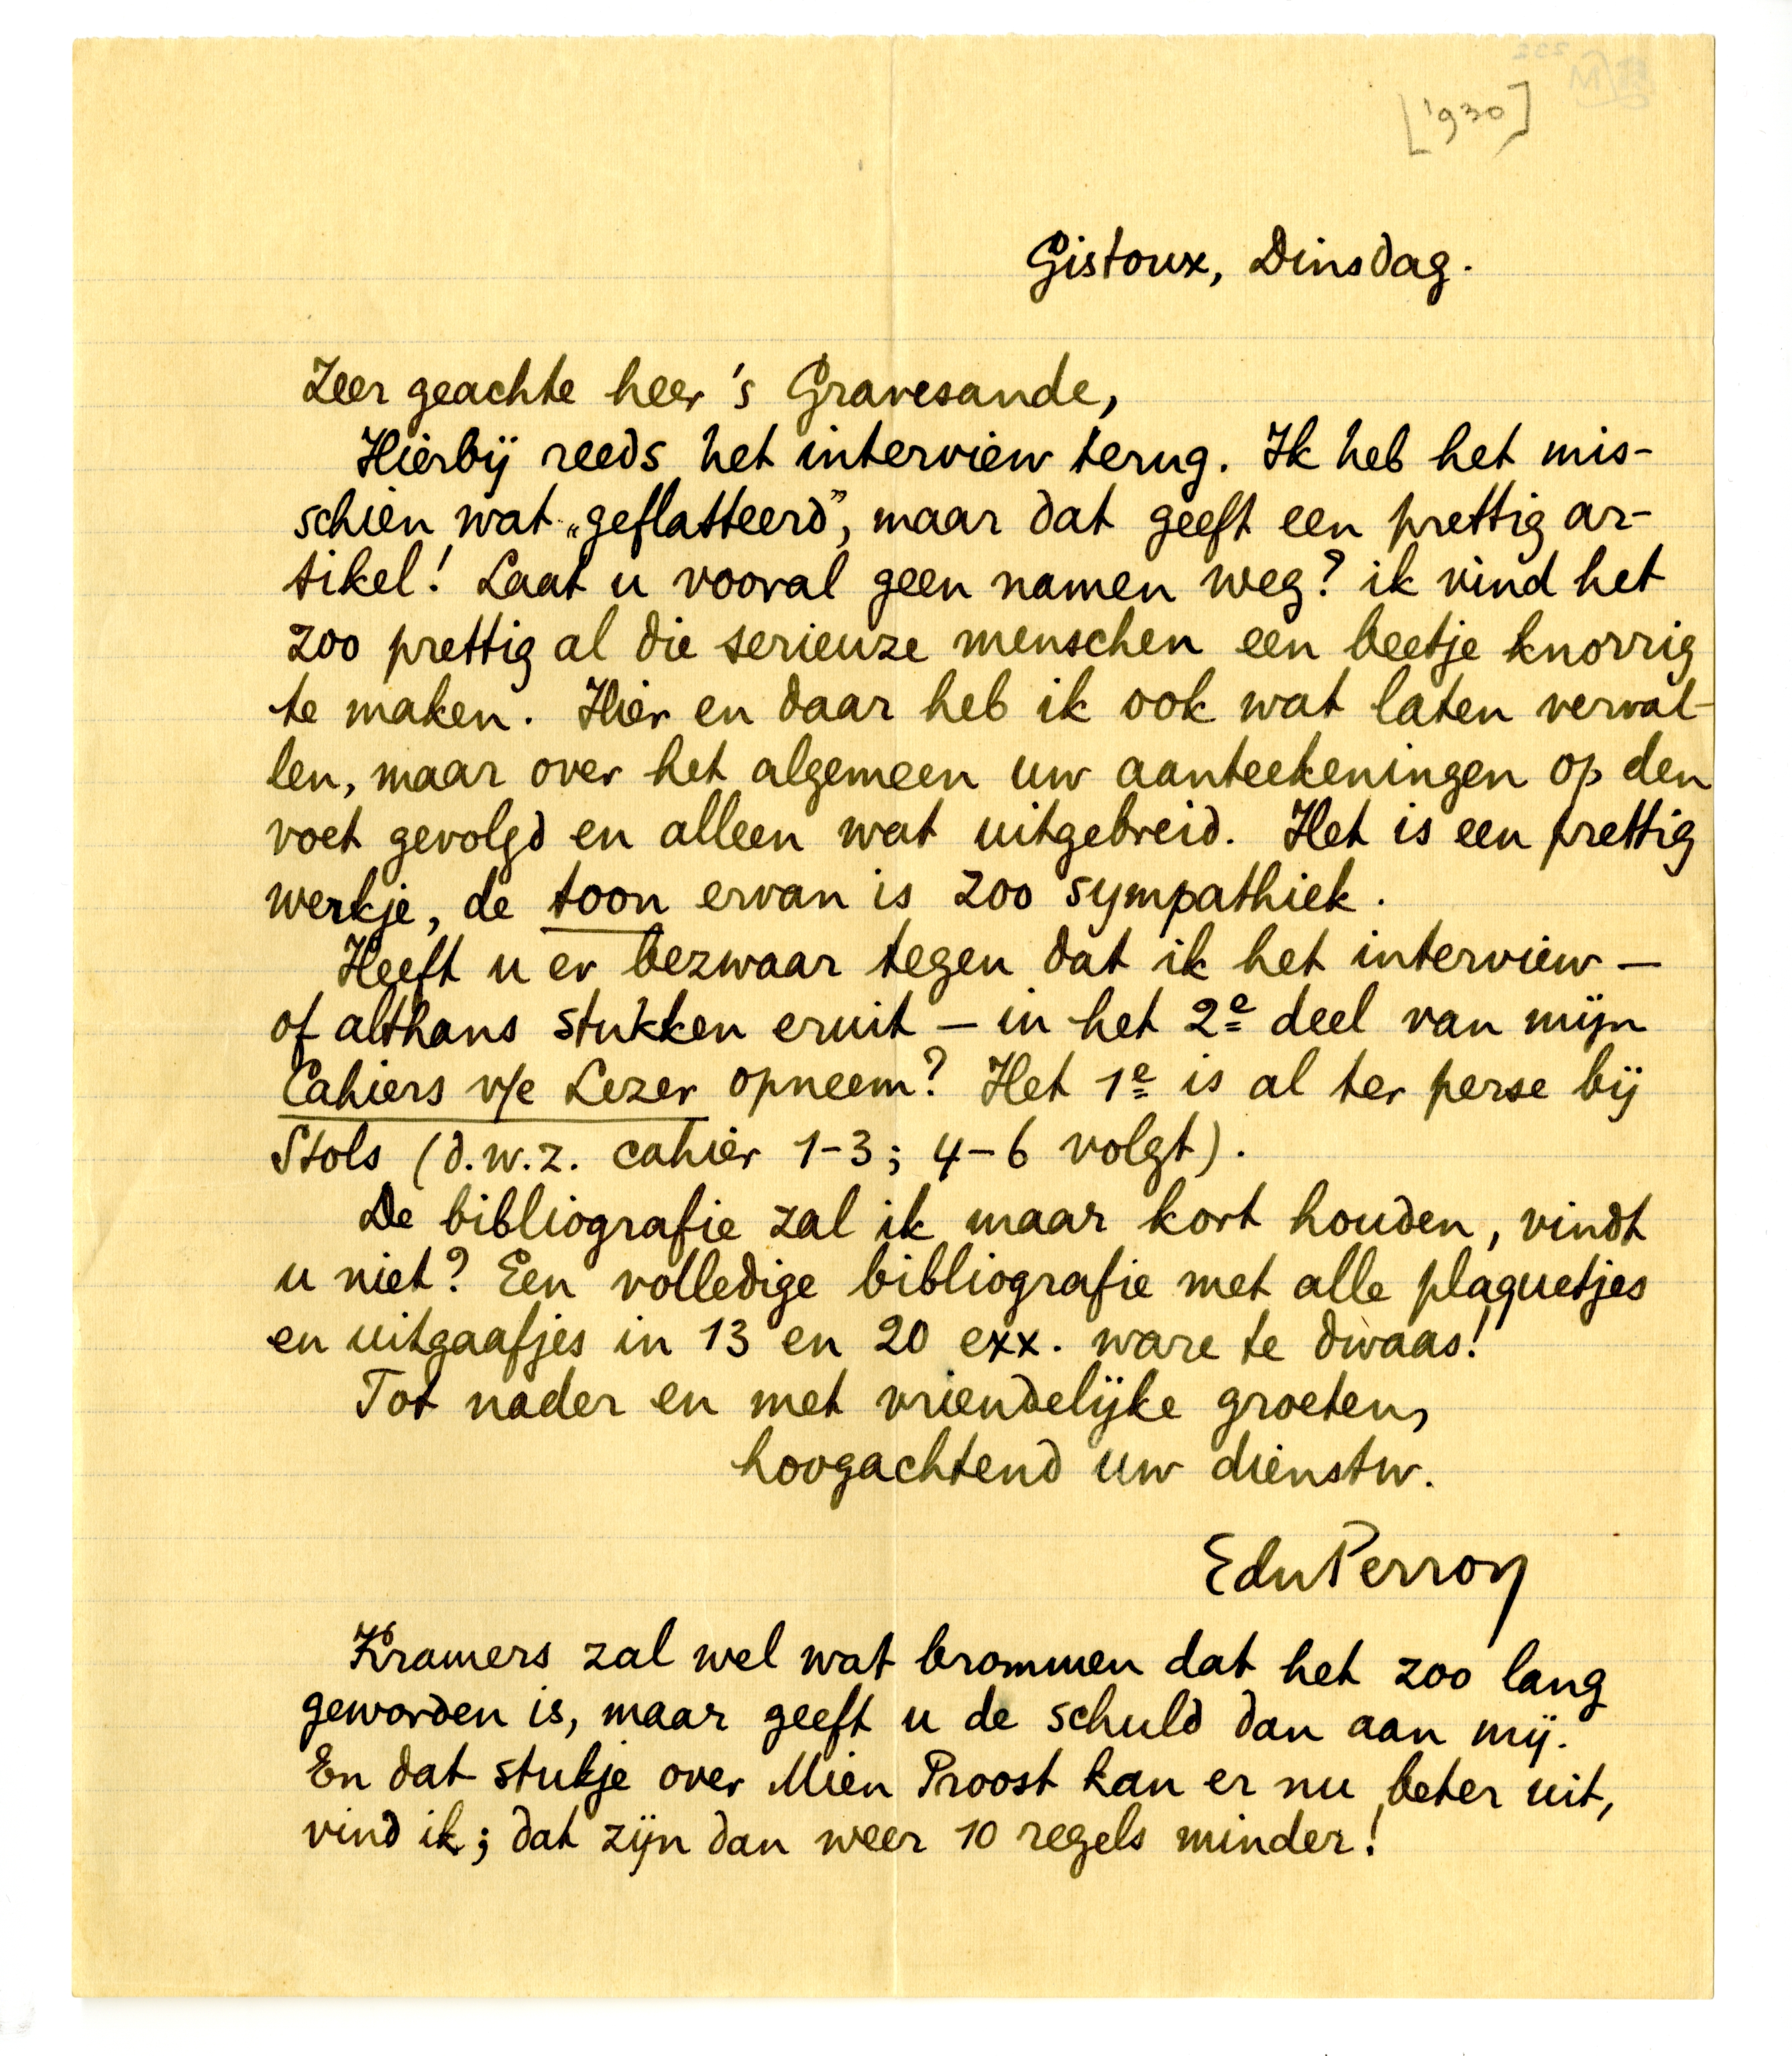 ['930]
Gistoux, Dinsdag.
Zeer geachte heer 's Gravesande,
Hierbij reeds het interview terug. Ik heb het mis-
schien wat „geflatteerd”, maar dat geeft een prettig ar-
tikel! Laat u vooral geen namen weg? ik vind het
zoo prettig al die serieuze menschen een beetje knorrig
te maken. Hier en daar heb ik ook wat laten verval-
len, maar over het algemeen uw aanteekeningen op den
voet gevolgd en alleen wat uitgebreid. Het is een prettig
werkje, de toon ervan is zoo sympathiek.
Heeft u er bezwaar tegen dat ik het interview –
of althans stukken eruit – in het 2e deel van mijn
Cahiers v/e Lezer opneem? Het 1e is al ter perse bij
Stols (d.w.z. cahier 1-3; 4-6 volgt).
De bibliografie zal ik maar kort houden, vindt
u niet? Een volledige bibliografie met alle plaquetjes
en uitgaafjes in 13 en 20 exx. ware te dwaas!
Tot nader en met vriendelijke groeten,
hoogachtend uw dienstw.
EduPerron
Kramers zal wel wat brommen dat het zoo lang
geworden is, maar geeft u de schuld dan aan mij.
En dat stukje over Mien Proost kan er nu beter uit,
vind ik; dat zijn dan weer 10 regels minder!